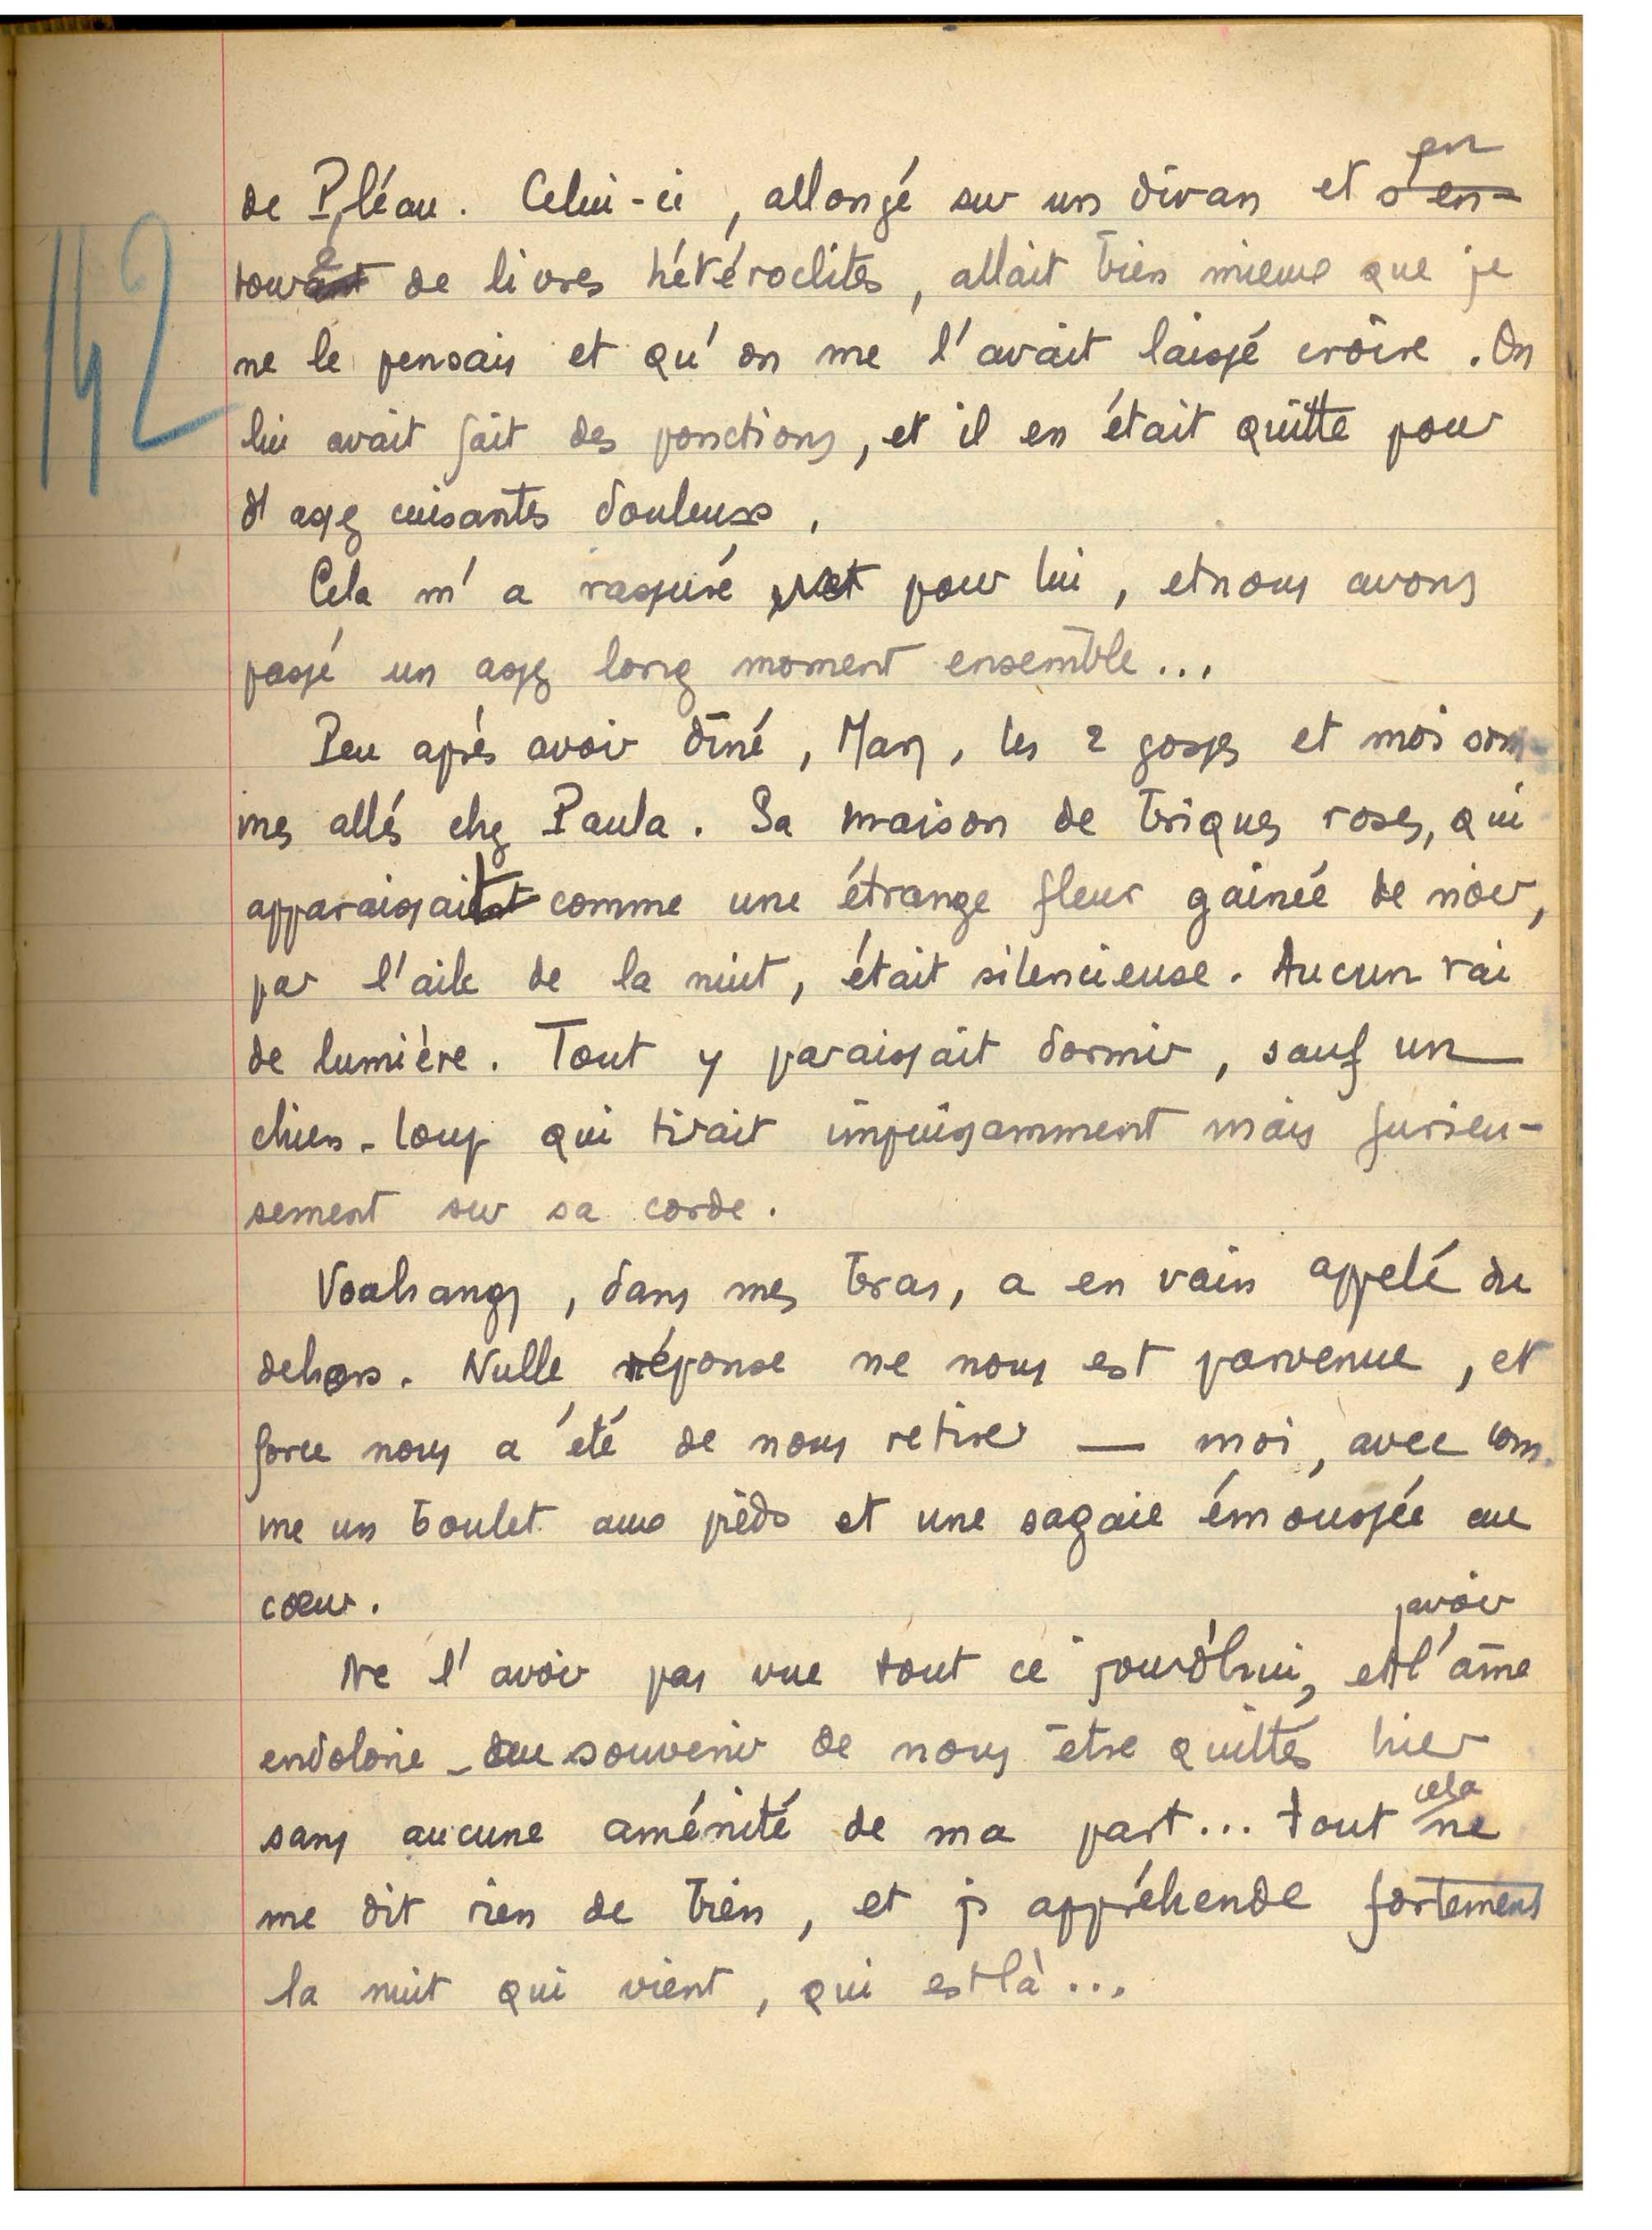 142
de Pléau. Celui-ci, allongé sur un divan et en-
touré de livres hétéroclites, allait bien mieux que je
ne le pensais et qu'on me l'avait laissé croire. On
lui avait fait des ponctions, et il en était quitte pour
d'assez cuisantes douleurs.
Cela m'a rassuré pour lui, et nous avons
passé un assez long moment ensemble...
Peu après avoir dîné, Mary, les 2 gosses et moi som-
mes allés chez Paula. Sa maison de briques roses, qui
apparaissait comme une étrange fleur gainée de noir,
par l'aile de la nuit, était silencieuse. Aucun rai
de lumière. Tout y paraissait dormir, sauf un
chien-loup qui tirait impuissamment mais furieu-
sement sur sa corde.
Voahangy, dans mes bras, a en vain appelé du
dehors. Nulle réponse ne nous est parvenue, et
force nous a été de nous retirer — moi, avec com-
me un boulet aux pieds et une sagaie émoussée au
cœur.
Ne l'avoir pas vue tout ce jourd'hui, et avoir l'âme
endolorie du souvenir de nous être quittés hier
sans aucune aménité de ma part... tout cela ne
me dit rien de bien, et j'appréhende fortement
la nuit qui vient, qui est là...